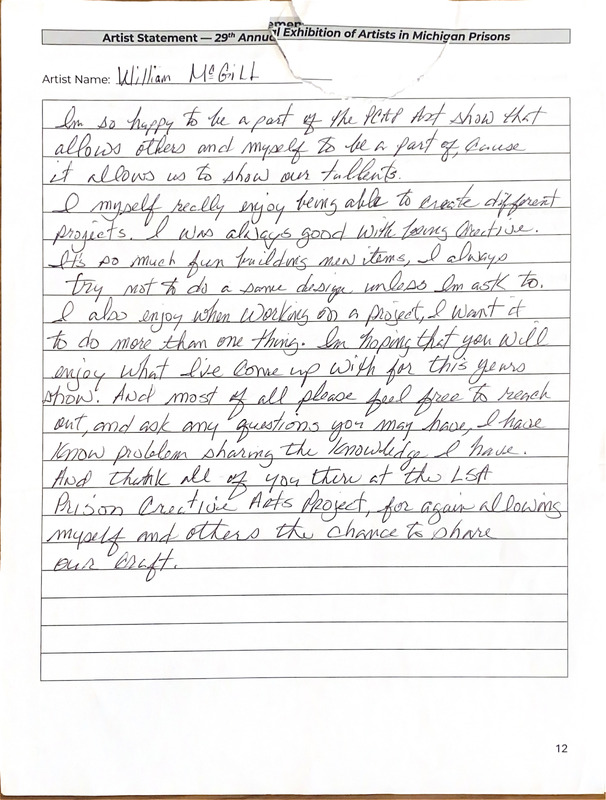 Artist Statement — 29th Annual Exhibition of Artists in Michigan Prisons
Artist Name: William McGill
Im so happy to be a part of the PCAP Art show that
allows others and myself to be a part of, cause
it allows us to show our tallents.
I myself really enjoy being able to create different
projects. I was always good with being Creative.
It's so much fun building new items, I always
try not to do a same design unless Im ask to.
I also enjoy when working on a project, I want it
to do more than one thing. Im hoping that you will
enjoy what I've come up with for this years
show. And most of all please feel free to reach
out, and ask any questions you may have, I have
Know problem sharing the Knowledge I have.
And thank all of you there at the LSA
Prison Creative Arts Project, for again allowing
myself and others the chance to share
our Craft.
12